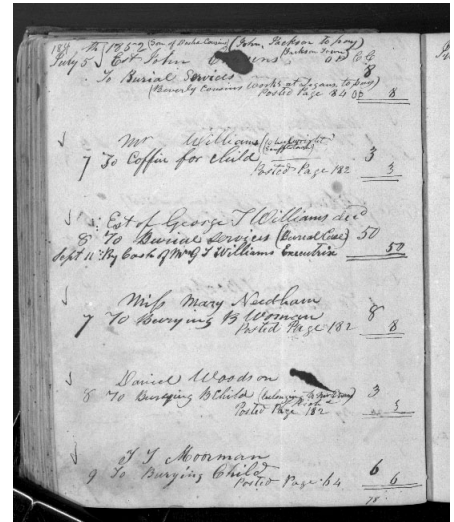 July 5 Est John
To Burial Services 8
(Beverly Cousins Works at Logans to pay)
Posted Page 84 8
Mr Williams (Wheelwright
7 To Coffin for child 3
Posted Page 182 3
Est of George T Williams decd
8 To Burial Services (Burial Case) 50
Sept 11 By Cash of Mrs G T Williams Executrix 50
Miss Mary Needham
7 To Burying B Woman 8
Posted Page 182 8
Daniel Woodson
8 To Burying B Child (belonging to 3
Posted Page 182 3
T T Moorman
9 To Burying Child 6
Posted Page 64 6
78